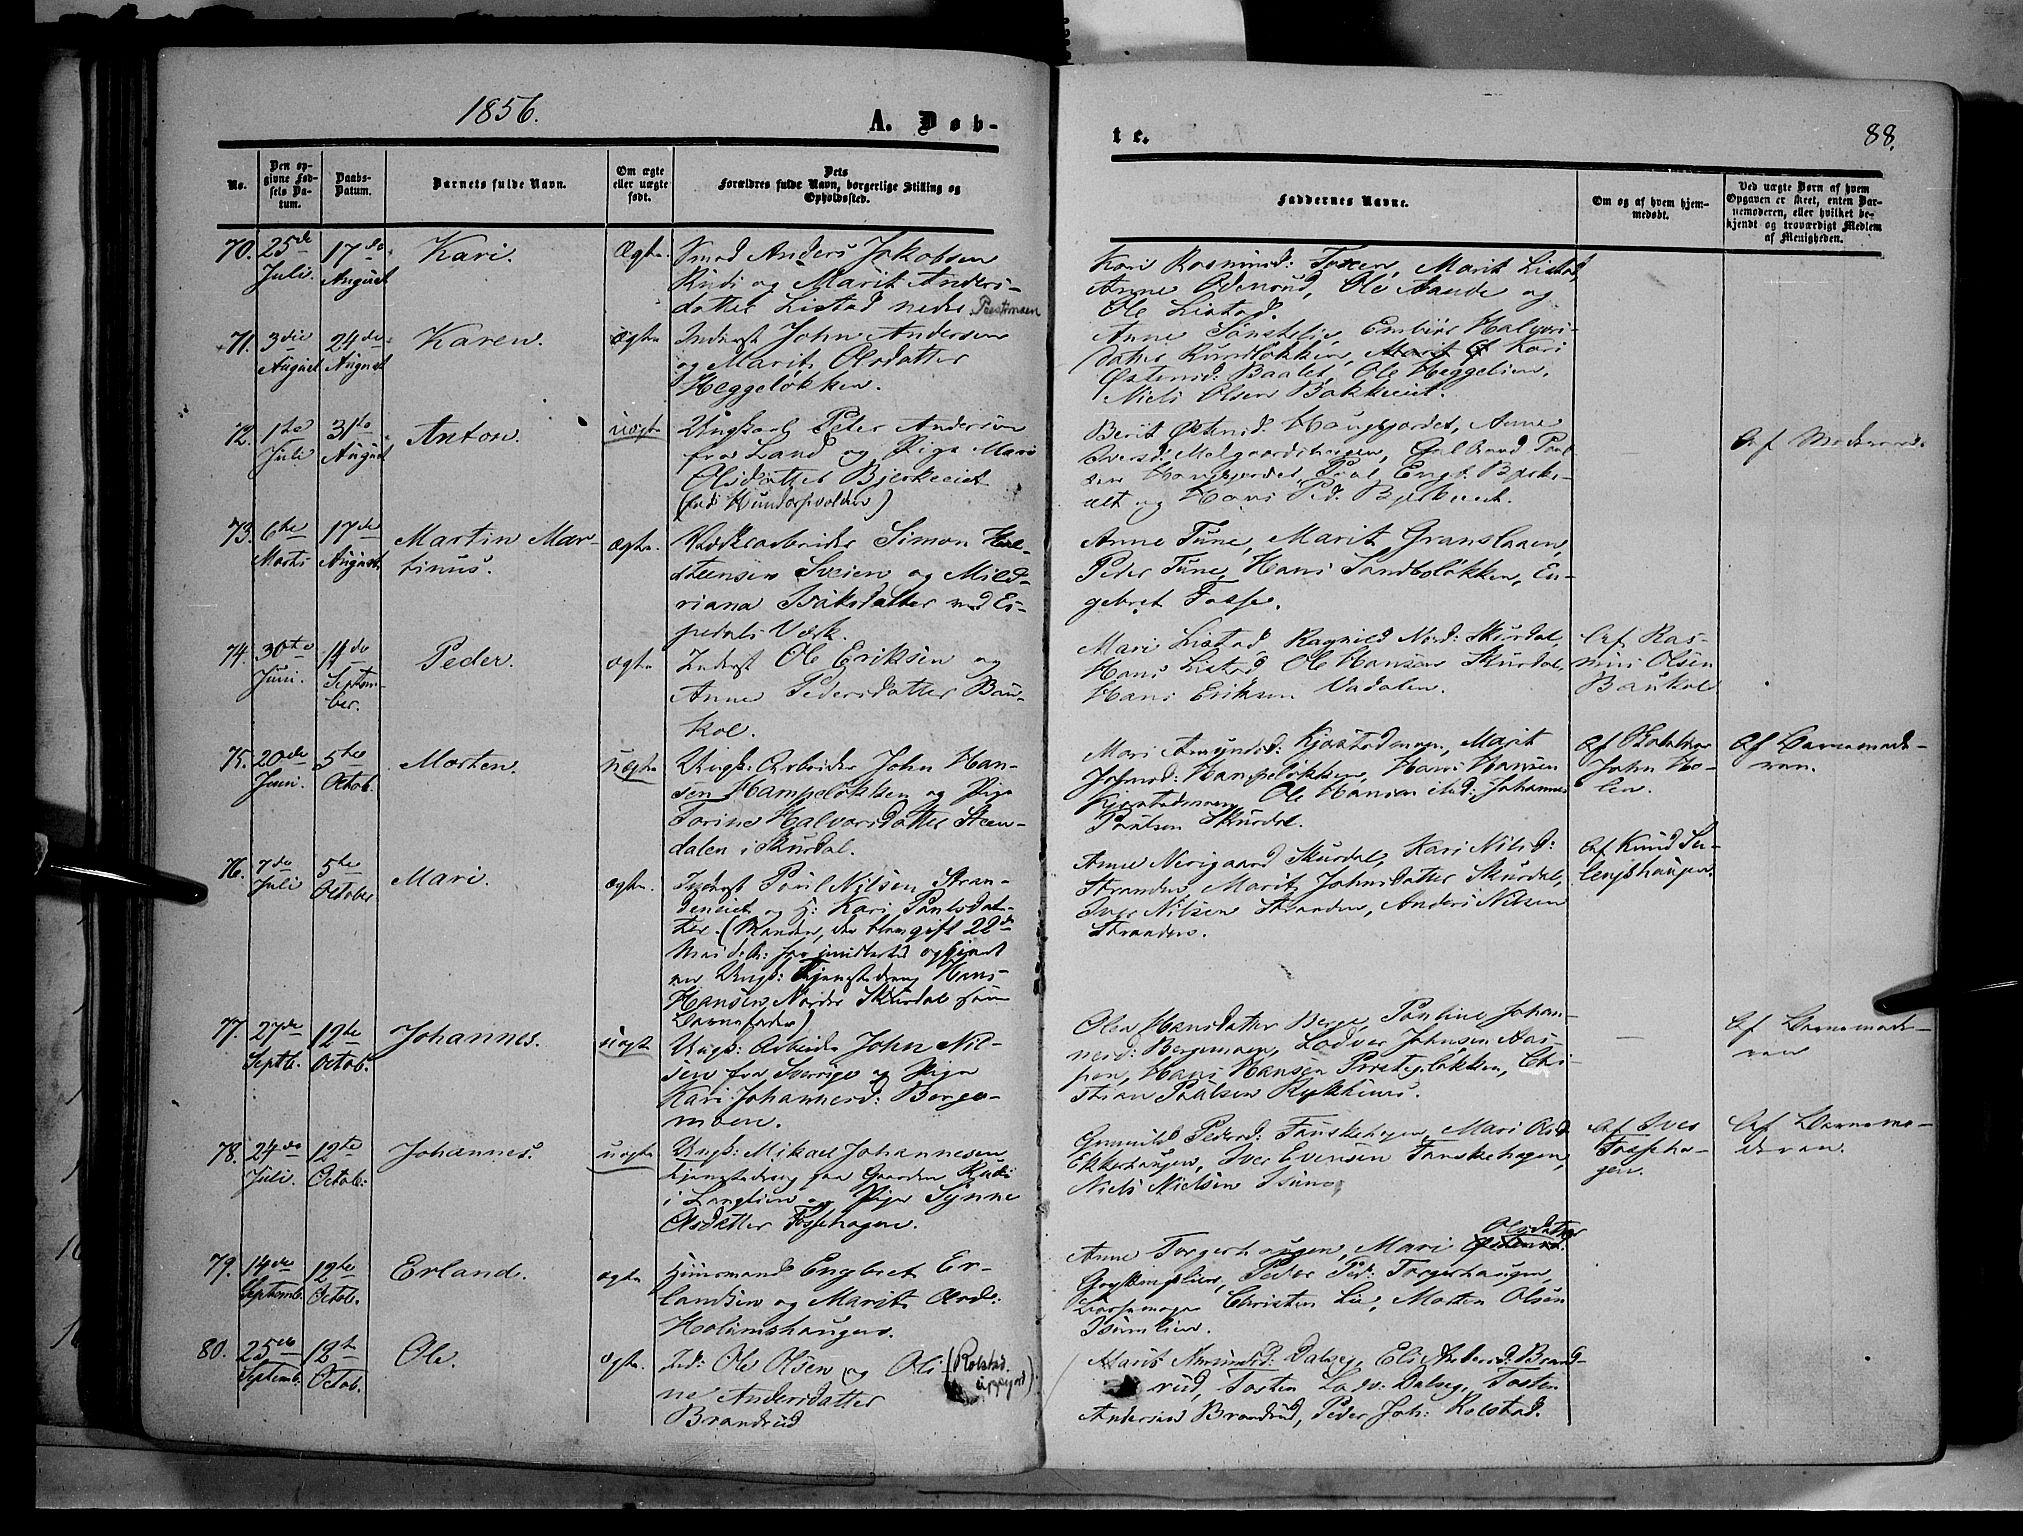 1856.
A. Døb-
te.
88.
No.
Den op-
givne Fød-
sels Da-
tum.
Daabs-
Datum.
Barnets fulde Navn.
Om ægte
eller uægte
født.
Dets
Forældres fulde Navn, borgerlige Stilling og
Opholdssted.
Faddernes Navne.
Om og af hvem hjem-
medøbt.
Ved uægte Børn af hvem
Opgaven er skeet, enten Bar-
nemoderen, eller hvilket be-
kjendt og troværdigt Medlem
af Menigheden.
70. 25de Juli. 17de August Kari. Ægte. Smed Anders Jakobsen
Rudi og Marit Anders-
datter Listad nedre
Anne Ødemond, Ole Aande og
Ole Listad.
71. 3die August 24de August Karen. ægte Inderst John Andersen
og Marit Olsdatter
Heggeløkken.
Anne Tønsteli, Embiør Halvors-
datter Rundløkken, Kari
Østensd: Baalet, Ole Heggelien,
Niels Olsen Bakkeeiet.
72. 1ste Juli 31te August Anton. uægte Ungkarl Peter Andersen
fra Land og Pige Mari
Olsdatter Bjerkeeiet
(født Hundorpvolden)
Berit Østensd: Haugkjordet, Anne
Iversd: Melgaardshagen, Gulbrand Paul-
sen
og Hans Ped.
Af Moderen.
73. 6te Marts 17de August Martin Mar-
tinus. ægte. Værksarbeider Simon Hal-
steensen Sveien og Mild-
riana Isaksdatter ved Es-
pedals Værk.
Anne Tune, Marit Granslaaen,
Peder Tune, Hans Sandbøløkken, En-
gebret Fosse.
74. 30te Juni. 14de Septem-
ber. Peder. ægte Inderst Ole Eriksen og
Anne Pedersdatter Bau-
kol.
Mari Listad, Ragnild Nord: Skurdal,
Hans Listad, Ole Hansen Skurdal,
Hans Eriksen Vadalen.
Af Ras-
mus Olsen
Baukol
75. 20de Juni. 5te Octob. Morten. Uægte Ungk: Arbeider John Han-
sen Hampeløkken og Pige
Torine Halvorsdatter Steen-
dalen i Skurdal.
Mari Amundsd: Kjorstadmoen, Marit
Hampeløkken, Hans Hansen
Kjorstadmoen, Ole Hansen Johannes
Paulsen Skurdal.
Af Skoleholder
John Ho-
len.
Af Barnemode-
ren.
76. 7de Juli 5te October Mari. ægte. Inderst Paul Nilsen Stran-
deneiet og H: Kari Paulsdat-
ter. (Manden, der blev gift 22de
Hans
Hansen Nordre Skurdal som
Barnefader)
Anne Nerigaard Skurdal, Kari Nilsd:
Stranden, Marit Johnsdatter Skurdal,
Iver Nilsen Stranden, Anders Nilsen
Stranden.
Af Knud
77. 27de Septb. 12te Octob. Johannes. uægte Ungk: Arbeider John Nil-
sen fra Sverige og Pige
Kari Johannesd: Berge-
moen.
Olea Hansdatter Berge, Pauline Johan-
nesd: Bergemoen, Lodver Johnsen Aas-
pen, Hans Hansen Prestegløkken, Chri-
stian Paulsen Rykkhus.
Af Barnemode-
ren
78. 24de Juli. 12te Octob: Johannes. uægte Ungk: Mikael Johannesen
tjenestedreng paa Gaarden Rudi
i Langlien og Pige Synne
Olsdatter Fossehagen.
Gunnild Pedersd: Fauskehagen, Mari Olsd
Ekkerhaugen, Iver Evensen Fauskehagen,
Niels Nielsen Isum.
Af Iver
Fosseha-
gen.
Af Barnemo-
deren.
79. 14de Septemb. 12te Octob. Erland. ægte Huusmand Engbret Er-
landsen og Marit
Holimshaugen.
Anne Torgerhaugen, Mari Olsdatter
Peder Ped: Torgerhaugen,
Christen Lie, Morten Olsen
Isumlien.
80. 25de Septemb. 12te Octob. Ole. ægte. Ind: Ole Olsen og Oli-
ne Andersdatter
Brandrud (Rolstad
eie)
Marit Amundsd: Dalseg, Eli Andersd: Brand-
rud, Tosten Lodv: Dalseg, Tosten
Andersen Brandrud, Peder Joh: Rolstad.